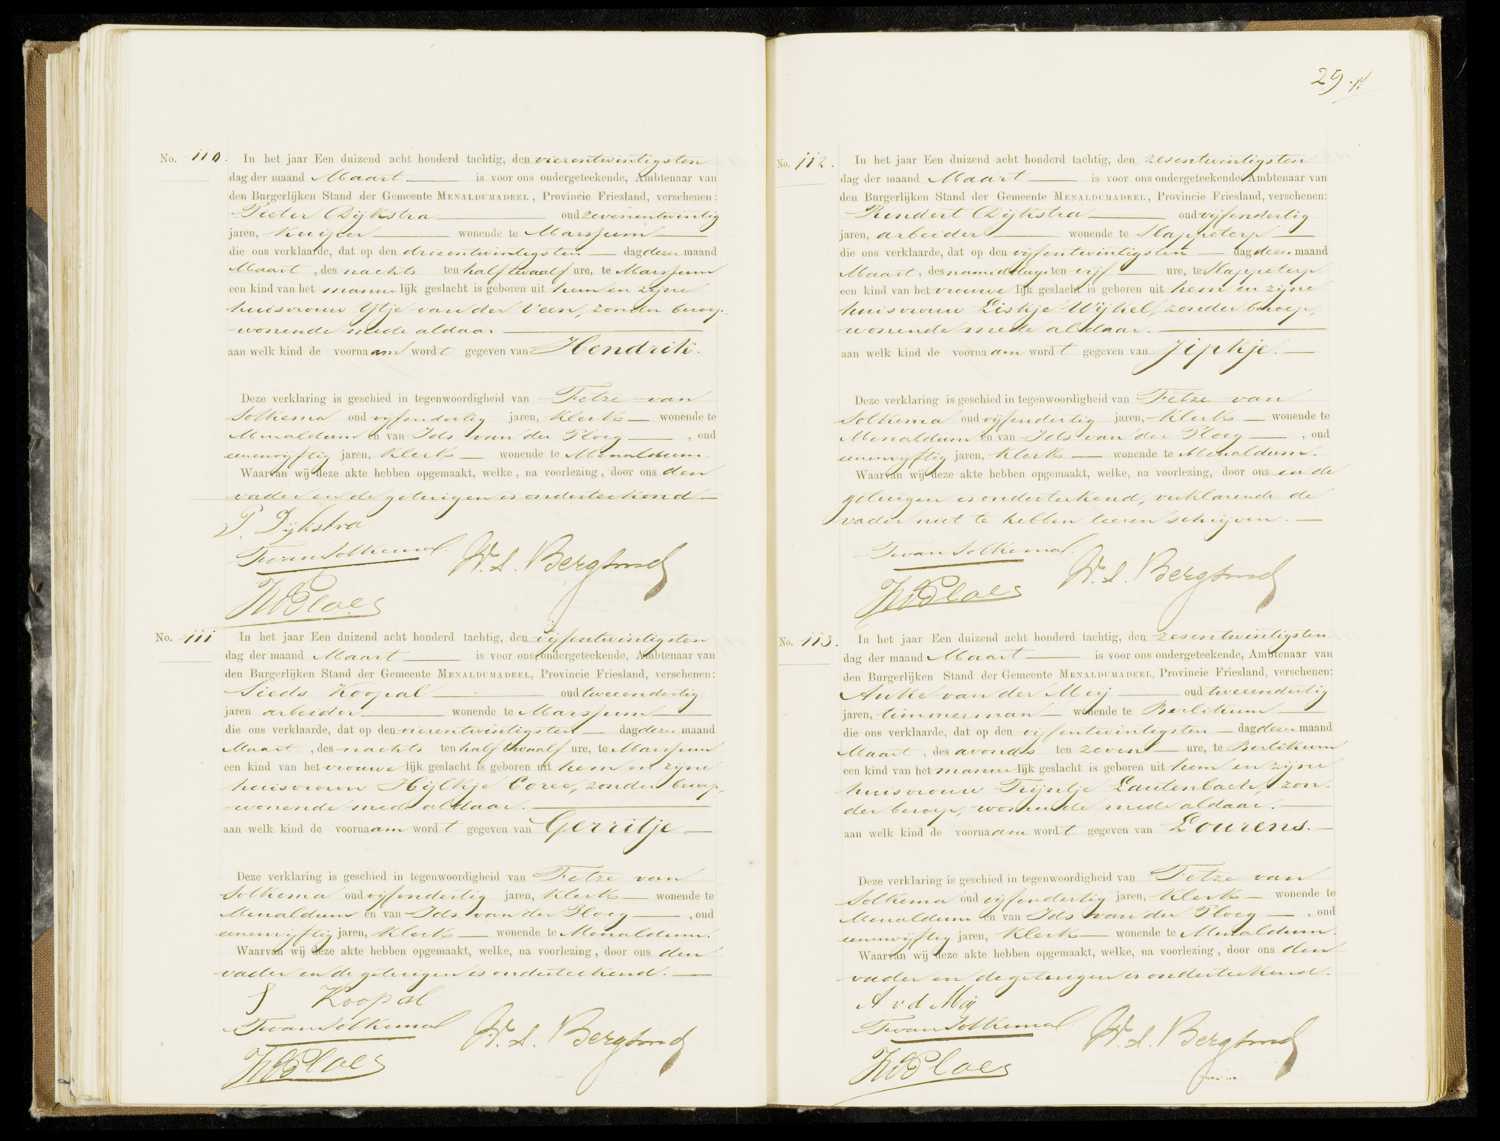 29.
No. 110. In het jaar Een duizend acht honderd tachtig, den vierentwintigsten
dag der maand Maart is voor ons ondergeteekende, Ambtenaar van
den Burgerlijken Stand der Gemeente MENALDUMADEEL, Provincie Friesland, verschenen:
Pieter Dijkstra oud zevenentwintig
jaren, Kuiper wonende te Marssum
die ons verklaarde, dat op den drieentwintigsten dag dezer maand
Maart, des nachts ten half twaalf ure, te Marssum
een kind van het mannelijk geslacht is geboren uit hem en zijne
huisvrouw Ytje van der Veen, zonder beroep,
wonende mede aldaar
aan welk kind de voornaam wordt gegeven van Hendrik.
Deze verklaring is geschied in tegenwoordigheid van Fetze van
Solkema oud vijfendertig jaren, Klerk wonende te
Menaldum en van Ids van der Ploeg, oud
eenenvijftig jaren, Klerk wonende te Menaldum.
Waarvan wij deze akte hebben opgemaakt, welke, na voorlezing, door ons den
vader en de getuigen is onderteekend
P. Dijkstra
F van Solkema
W. S. Bergsma
No. 111 In het jaar Een duizend acht honderd tachtig, den vijfentwintigsten
dag der maand Maart is voor ons ondergeteekende, Ambtenaar van
den Burgerlijken Stand der Gemeente MENALDUMADEEL, Provincie Friesland, verschenen:
Sieds Koopal oud tweeendertig
jaren arbeider wonende te Marssum
die ons verklaarde, dat op den vierentwintigsten dag dezer maand
Maart, des nachts ten half twaalf ure, te Marssum
een kind van het vrouwelijk geslacht is geboren uit hem en zijne
huisvrouw Hijlkje zonder beroep,
wonende mede aldaar.
aan welk kind de voornaam wordt gegeven van Gerritje
Deze verklaring is geschied in tegenwoordigheid van Fetze van
Solkema oud vijfendertig jaren, Klerk wonende te
Menaldum en van Ids van der Ploeg, oud
eenenvijftig jaren, Klerk wonende te Menaldum.
Waarvan wij deze akte hebben opgemaakt, welke, na voorlezing, door ons den
vader en de getuigen is onderteekend.
S Koopal
F van Solkema
W. S. Bergsma
No. 112. In het jaar Een duizend acht honderd tachtig, den zesentwintigsten
dag der maand Maart is voor ons ondergeteekende, Ambtenaar van
den Burgerlijken Stand der Gemeente MENALDUMADEEL, Provincie Friesland, verschenen:
Rendert Dijkstra oud vijfendertig
jaren, arbeider wonende te Slappeterp
die ons verklaarde, dat op den vijfentwintigsten dag dezer maand
Maart, des namiddags ten vijf ure, te Slappeterp
een kind van het vrouwelijk geslacht is geboren uit hem en zijne
huisvrouw Liskje Wijkel, zonder beroep,
wonende mede aldaar.
aan welk kind de voornaam wordt gegeven van Jipkje.
Deze verklaring is geschied in tegenwoordigheid van Fetze van
Solkema oud vijfendertig jaren, Klerk wonende te
Menaldum en van Ids van der Ploeg, oud
eenenvijftig jaren, Klerk wonende te Menaldum.
Waarvan wij deze akte hebben opgemaakt, welke, na voorlezing, door ons en de
getuigen is onderteekend, verklarende de
vader niet te hebben leeren schrijven.
F van Solkema
W. S. Bergsma
No. 113. In het jaar Een duizend acht honderd tachtig, den zesentwintigsten
dag der maand Maart is voor ons ondergeteekende, Ambtenaar van
den Burgerlijken Stand der Gemeente MENALDUMADEEL, Provincie Friesland, verschenen:
Auke van der Meij oud tweeendertig
jaren, timmerman wonende te Berlikum
die ons verklaarde, dat op den vijfentwintigsten dag dezer maand
Maart, des avonds ten zeven ure, te Berlikum
een kind van het mannelijk geslacht is geboren uit hem en zijne
huisvrouw Trijntje Lautenbach, zon-
der beroep, wonende mede aldaar.
aan welk kind de voornaam wordt gegeven van Lourens.
Deze verklaring is geschied in tegenwoordigheid van Fetze van
Solkema oud vijfendertig jaren, Klerk wonende te
Menaldum en van Ids van der Ploeg, oud
eenenvijftig jaren, Klerk wonende te Menaldum.
Waarvan wij deze akte hebben opgemaakt, welke, na voorlezing, door ons den
vader en de getuigen is onderteekend.
A v d Meij
F van Solkema
W. S. Bergsma